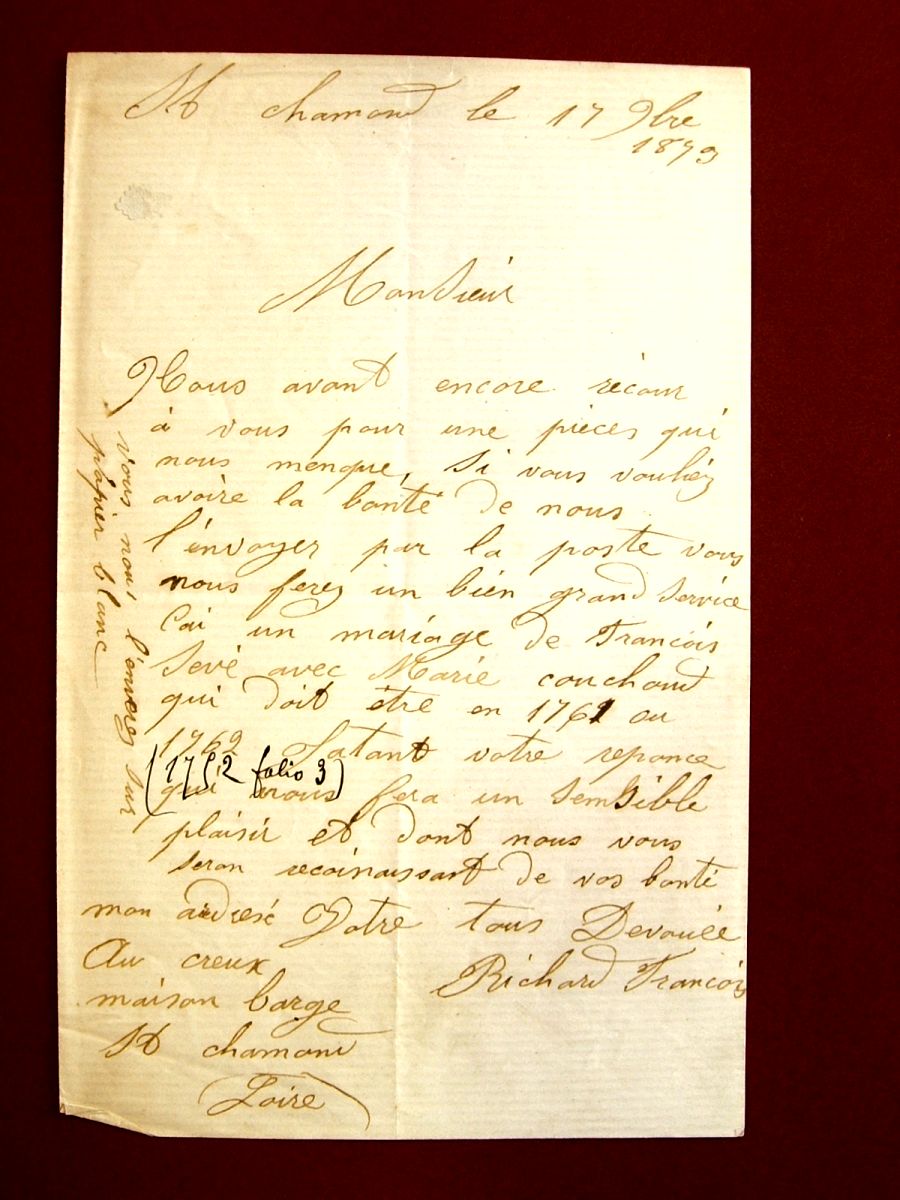 St chamond le 17 9bre
1879
Monsieur
Nous avont encore récour
à vous pour une pièces qui
nous menque, Si vous vouliéz
avoire la bonté de nous
l'énvoyer par la poste vous
nous ferez un bién grand Service
C'ai un mariage de Francois
Sevé avec Marie couchoud
qui doit être en 1761 ou
1762 J'atant votre reponce
(1752 folio 3)
qui nous fera un Sensible
plaisir et dont nous vous
seron recoinaissant de vos bonté
mon adresé Votre tous Devouée
Au creux Richard Francois
maison barge
St chamond
Loire
vous nou' l'énverez sur
papier blanc